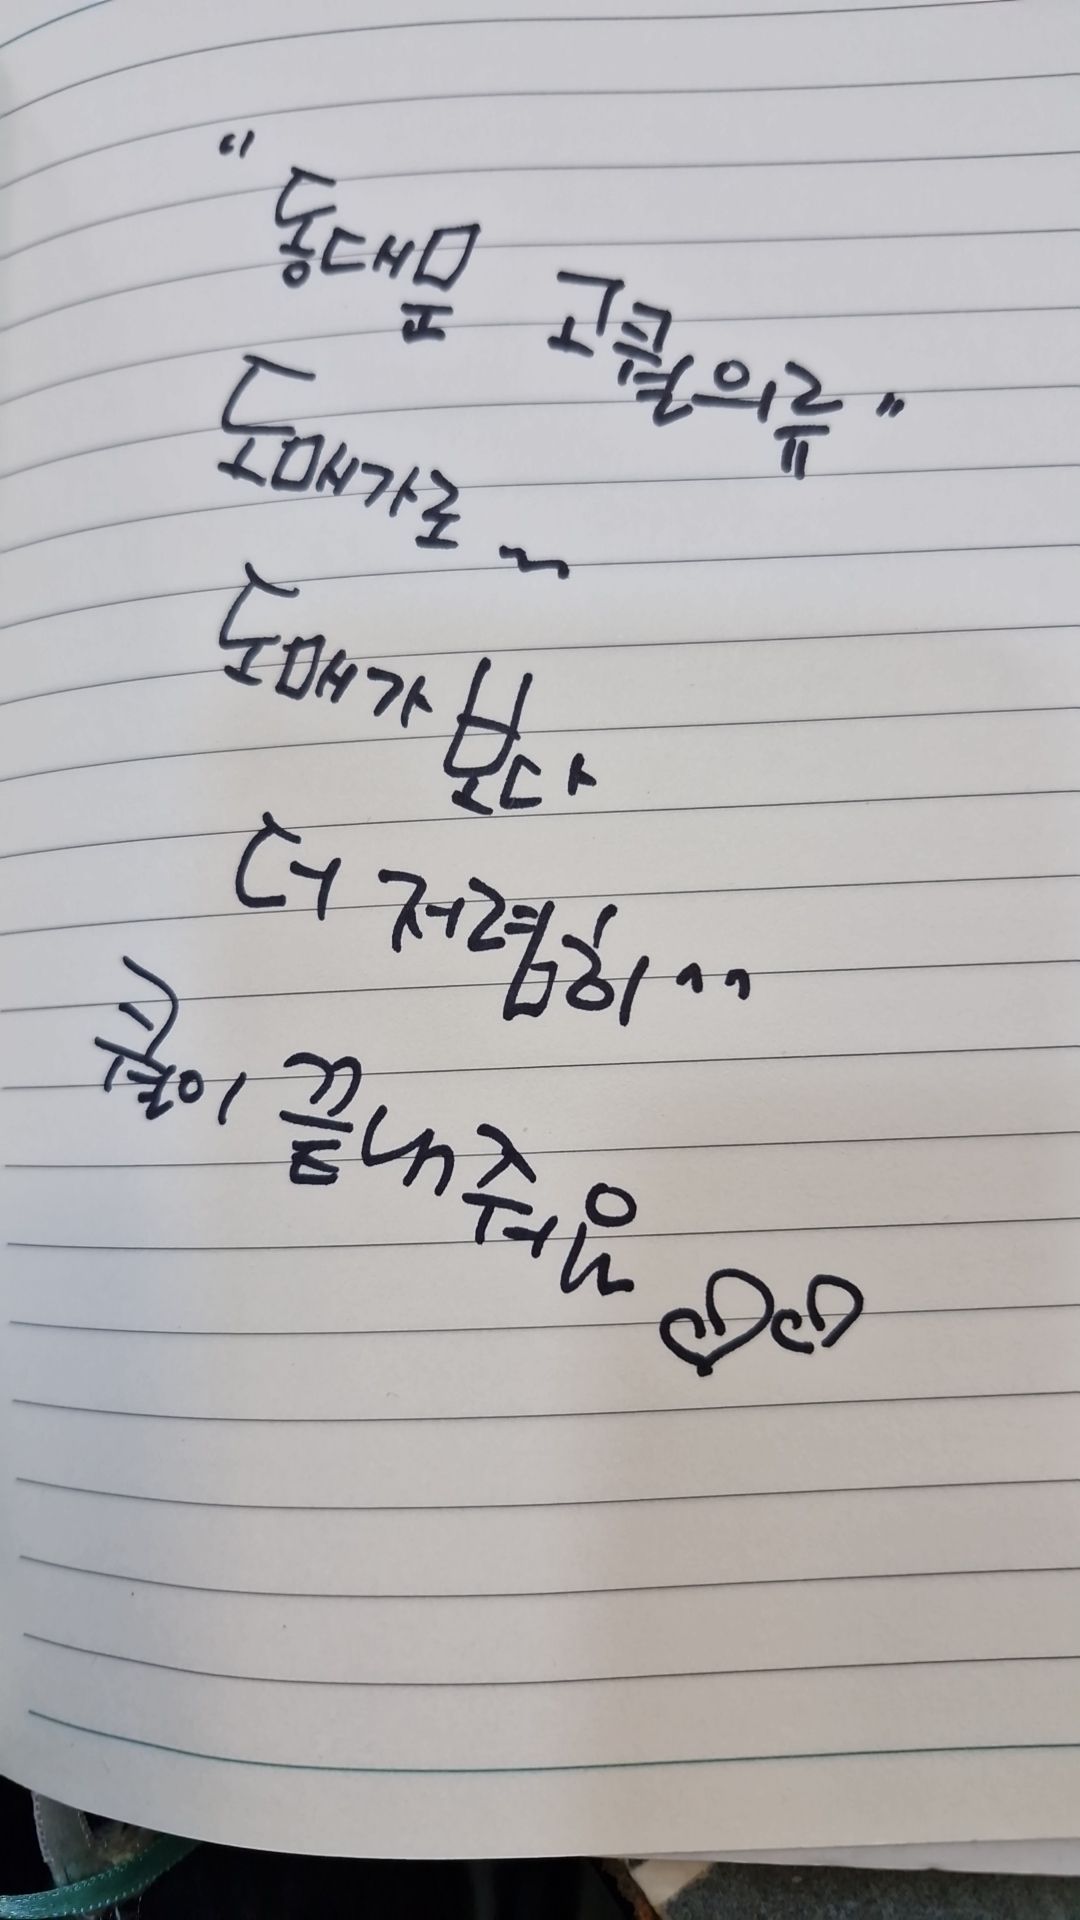 "동대문 고퀄의류"
도매가로~
도매가보다
더 저렴히^^
퀄이 끝내줘욘
♡♡